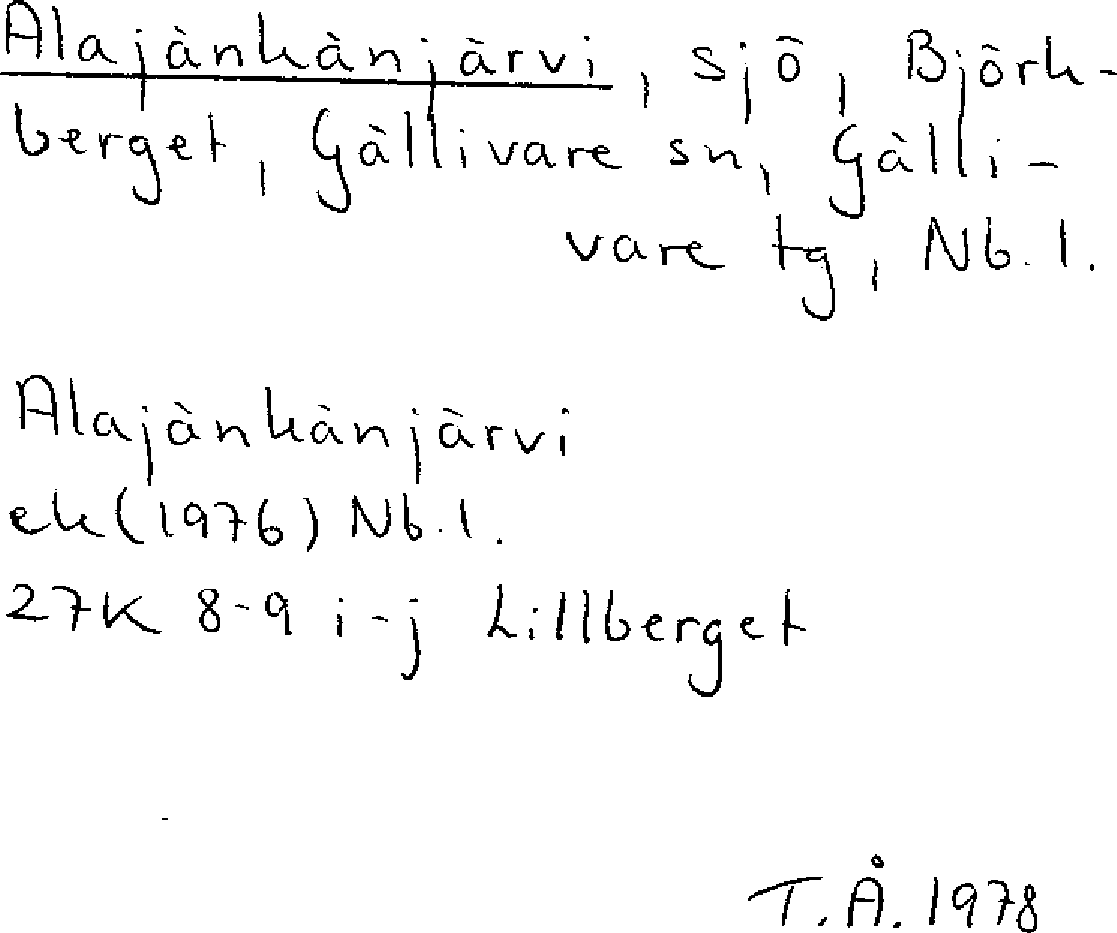 Alajänkänjärvi, sjö, Björk-
berget, Gällivare sn, Gälli-
vare tg, Nb. l.
Alajänkänjärvi
ek (1976) Nb. l.
27K 8-9 i-j Lillberget
T.Å. 1978